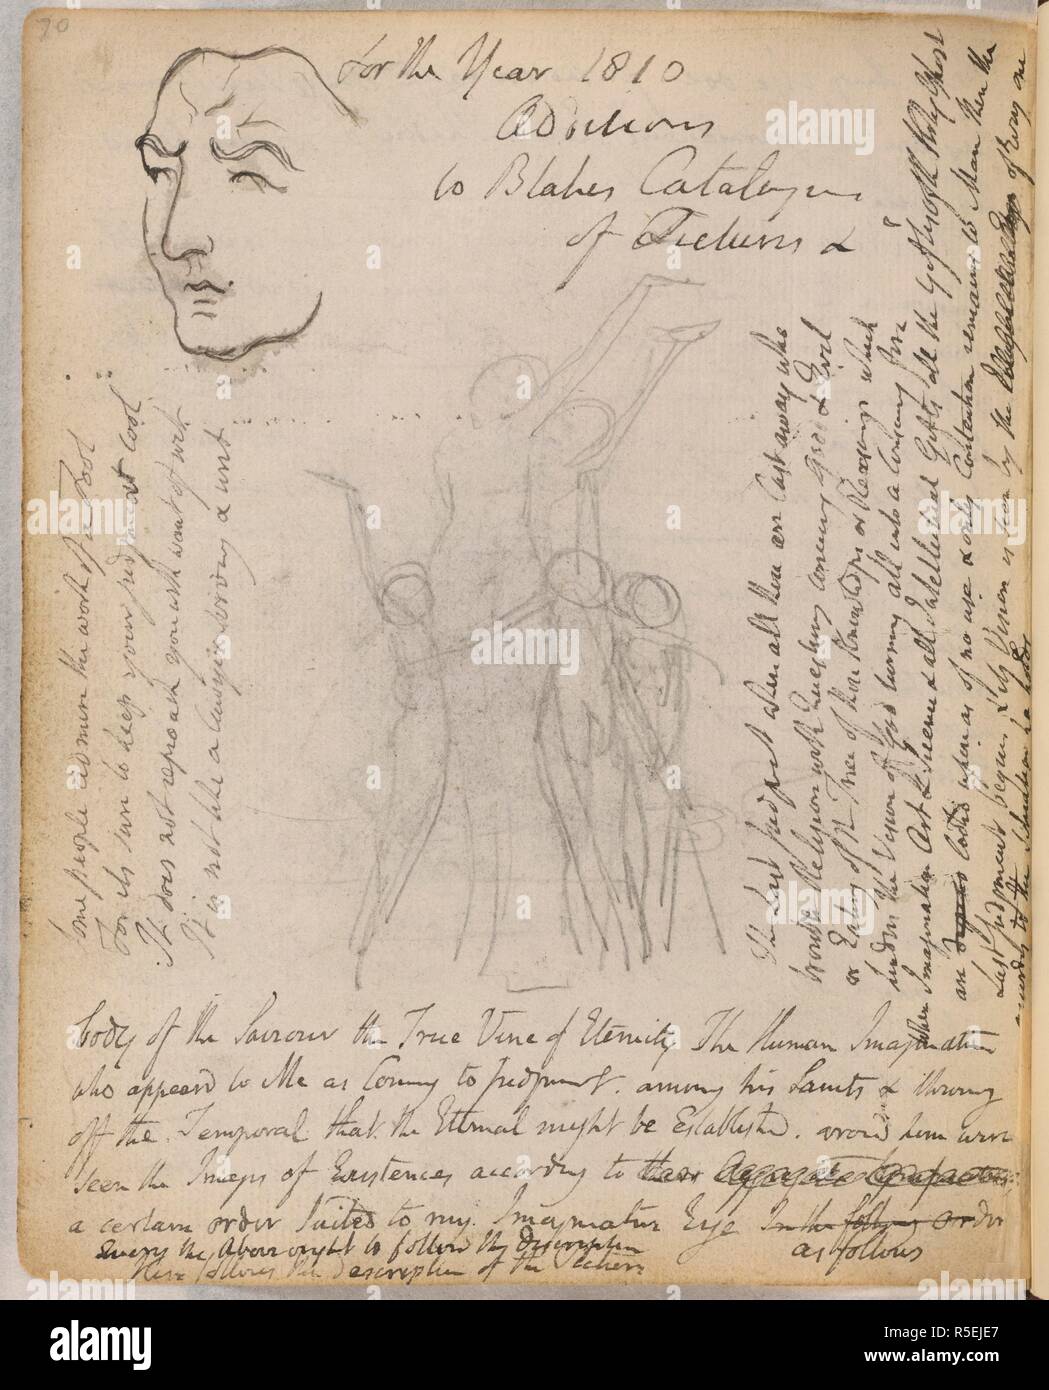 70
For the Year 1810
Additions
to Blakes Catalogue
of Pictures &
Some people admire the work of a Fool
For its sure to keep your judgment cool
It does not reproach you with want of wit
It is not like a lawyer serving a writ
The Last Judgment when all those are Cast away who
trouble Religion with Questions concerning Good & Evil
or Eating of the Tree of those Knowledges or Reasonings which
hinder the Vision of God turning all into a Consuming fire
When Imagination Art & Science & all Intellectual Gifts all the Gifts of the Holy Ghost
are lookd upon as of no use & only Contention remains to Man then the
Last Judgment begins & its Vision is seen by the of Every one
according to the situation he holds
body of the Saviour the True Vine of Eternity The Human Imagination
who appeard to Me as Coming to Judgment. among his Saints & throwing
off the Temporal that the Eternal might be Establishd. around him were
seen the Images of Existences according to
a certain order Suited to my Imaginative Eye In the following order
as follows
Query the Above ought to follow the description
Here follows the description of the Picture
alamy
a
alamy stock photo
R5EJE7
www.alamy.com